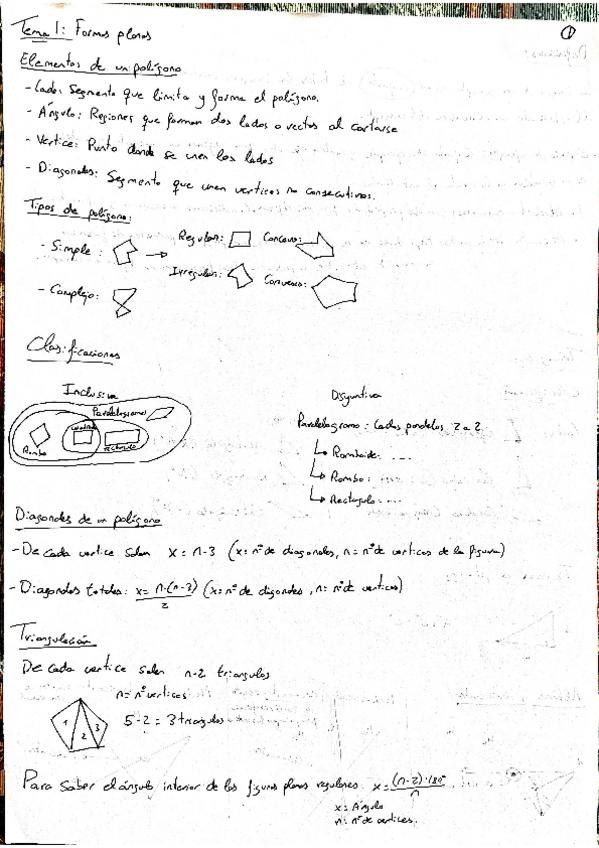 Tema 1: Formas planas
1
Elementos de un polígono
- Lado: Segmento que limita y forma el polígono.
- Ángulo: Regiones que forman dos lados o vectos al cortarse
- Vertice: Punto donde se unen los lados
- Diagonales: Segmento que unen vertices no consecutivos.
Tipos de polígono:
- Simple: → Regular: Concavo:
Irregular: Convexo:
- Complejo:
Clasificaciones
Inclusiva
Paralelogramo
cuadrado
Rombo
rectángulo
Disyuntiva
Paralelogramo: Lados paralelos 2 a 2
↳ Romboide: ...
↳ Rombo: ...
↳ Rectagulo: ...
Diagonales de un polígono
- De cada vertice salen x = n-3 (x = nº de diagonales, n = nº de vertices de la figura)
- Diagonales totales: x = n·(n-3)/2 (x = nº de digonales, n = nº de vertices)
Triangulación
De cada vertice salen n-2 triangulos
n = nº vertices
5-2 = 3 triangulos
1 2 3
Para saber el ángulo interior de las figuras planas regulares x = (n-2)·180º/n
x = Ángulo
n = nº de vertices.